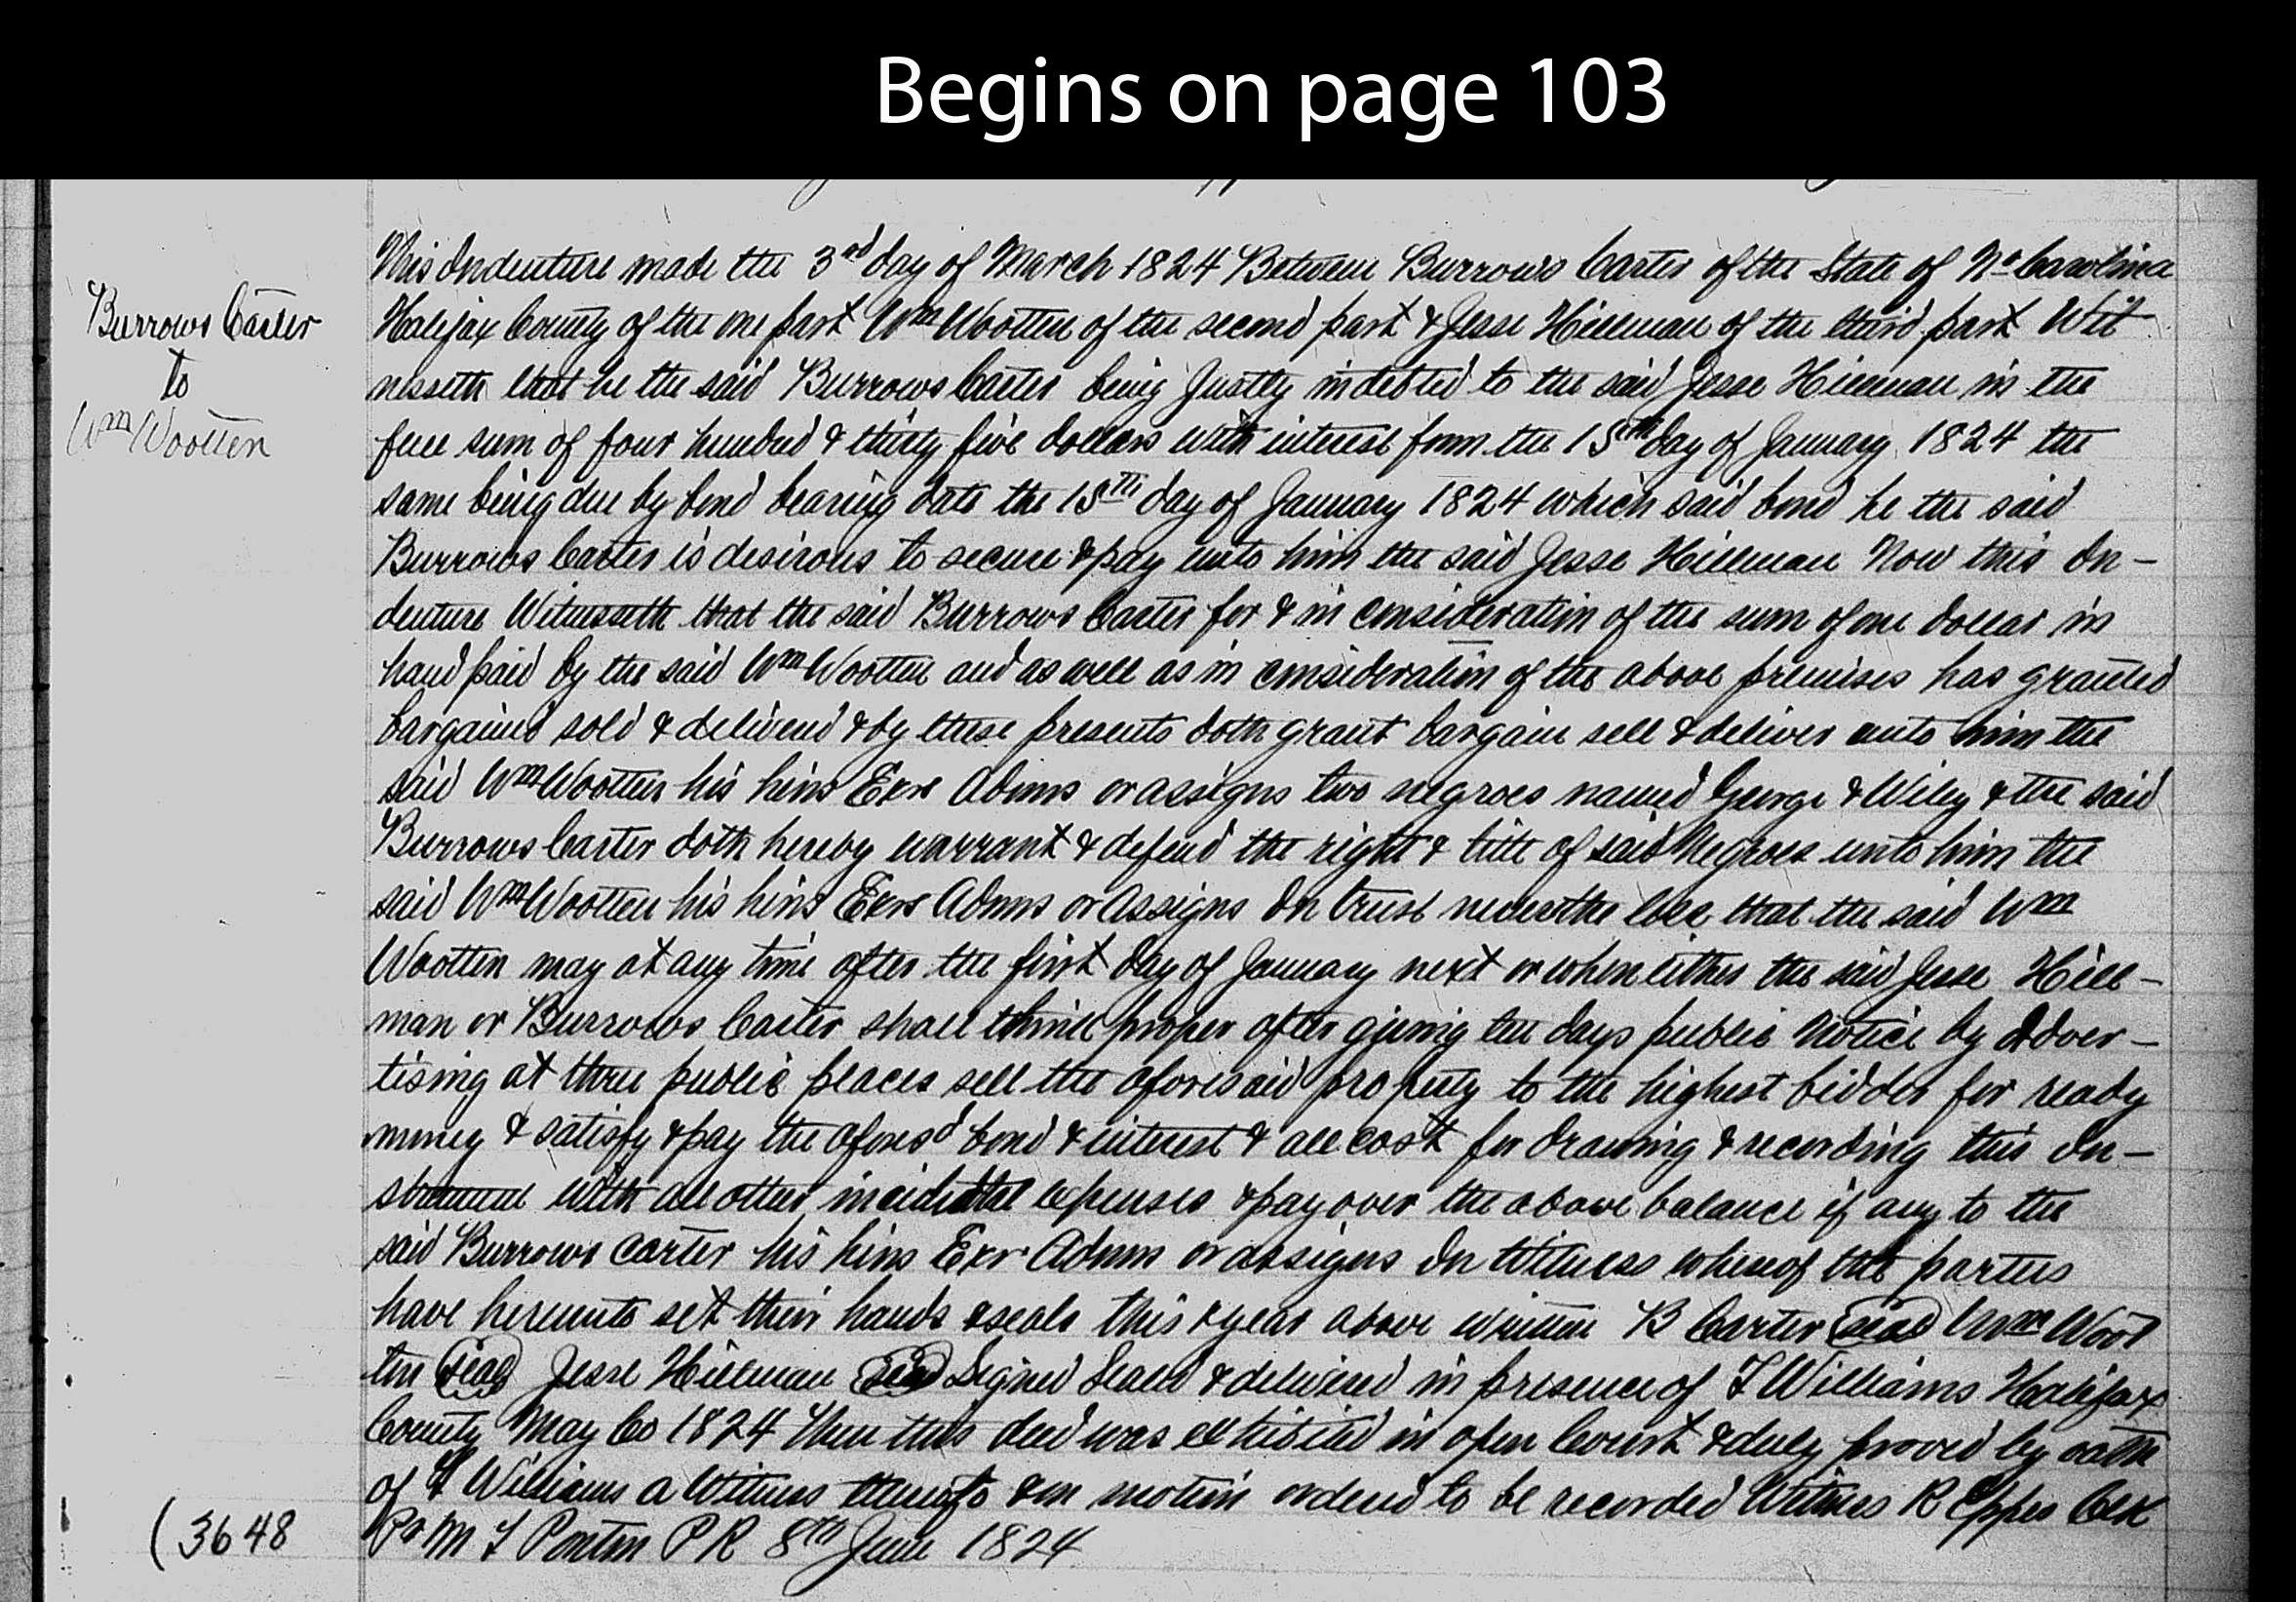 Begins on page 103
Burrows Carter
to
Wm Wootten
This Indenture made the 3rd day of March 1824 Between Burrows Carter of the State of No Carolina
Halifax County of the one part Wm Wootten of the second part & Jesse Hillman of the third part Wit
nesseth that he the said Burrows Carter being Justly indebted to the said Jesse Hillman in the
full sum of four hundred & thirty five dollars with interest from the 15th day of January 1824 the
same being due by bond bearing date the 15th day of January 1824 which said bond he the said
Burrows Carter is desirous to secure & pay unto him the said Jesse Hillman Now this In-
denture Witnesseth that the said Burrows Carter for & in consideration of the sum of one dollar in
hand paid by the said Wm Wootten and as well as in consideration of the above premises has granted
bargained sold & delivered & by these presents doth grant bargain sell & deliver unto him the
said Wm Wootten his heirs Exrs Adms or assigns two negroes named George & Wiley & the said
Burrows Carter doth hereby warrant & defend the right & title of said Negroes unto him the
said Wm Wootten his heirs Exrs Adms or assigns In trust nevertheless that the said Wm
Wootten may at any time after the first day of January next or when either the said Jesse Hill-
man or Burrows Carter shall think proper after giving ten days public Notice by Adver-
tising at three public places sell the aforesaid property to the highest bidder for ready
money & satisfy & pay the aforesd bond & interest & all cost for drawing & recording this In-
strument with all other incidental expenses & pay over the above balance if any to the
said Burrows Carter his heirs Exr Adms or assigns In Witness whereof the parties
have hereunto set their hands & seals this & year above written B Carter seal Wm Woot
ten seal Jesse Hillman seal Signed Seald & delivered in presence of F Williams Halifax
County May Co 1824 Then this deed was exhibited in open Court & duly proved by oath
of F Williams a Witness thereto & on motion ordered to be recorded Witness R Eppes Clk
(3648
Pr M F Ponton P R 8th June 1824